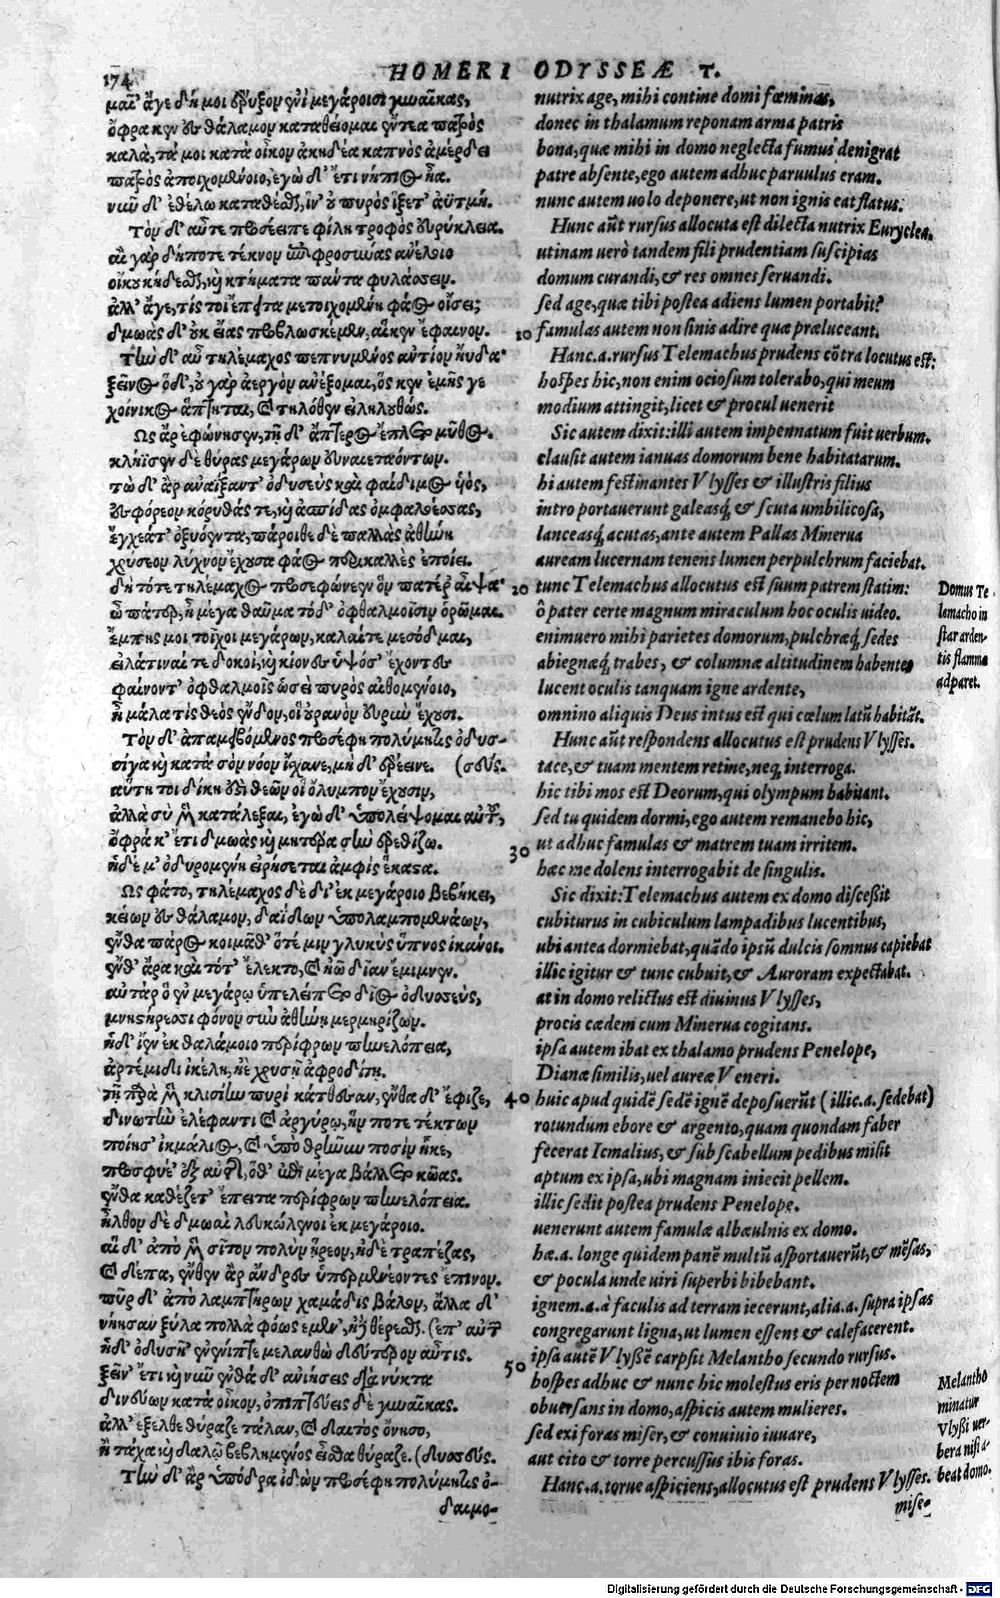 174
HOMERI ODYSSEÆ T.
μαῖ' ἄγε δή μοι ἔρυξον ἐνὶ μεγάροισι γυναῖκας,
ὄφρα κεν ἐς θάλαμον καταθείομαι ἔντεα πατρὸς
καλὰ, τά μοι κατὰ οἶκον ἀκηδέα καπνὸς ἀμέρδει
πατρὸς ἀποιχομένοιο, ἐγὼ δ' ἔτι νήπιος ἦα.
νῦν δ' ἐθέλω καταθέσθαι, ἵν' οὐ πυρὸς ἵξετ' ἀϋτμή.
Τὸν δ' αὖτε προσέειπε φίλη τροφὸς εὐρύκλεια.
αἲ γὰρ δήποτε τέκνον ἐπιφροσύνας ἀνέλοιο
οἴκου κήδεσθαι, καὶ κτήματα πάντα φυλάσσειν.
ἀλλ' ἄγε, τίς τοι ἔπειτα μετοιχομένη φάος οἴσει;
δμωὰς δ' οὐκ εἴας προβλωσκέμεν, αἵ κεν ἔφαινον.
Τὴν δ' αὖ τηλέμαχος πεπνυμένος ἀντίον ηὔδα·
ξεῖνος ὅδ', οὐ γὰρ ἀεργὸν ἀνέξομαι, ὅς κεν ἐμῆς γε
χοίνικος ἅπτηται, καὶ τηλόθεν εἰληλουθώς.
Ὣς ἄρ' ἐφώνησεν, τῇ δ' ἄπτερος ἔπλετο μῦθος.
κλήϊσεν δὲ θύρας μεγάρων εὐναιεταόντων.
τὼ δ' ἄρ' ἀναΐξαντ' ὀδυσεὺς καὶ φαίδιμος υἱός,
ἐσφόρεον κόρυθάς τε, καὶ ἀσπίδας ὀμφαλοέσσας,
ἔγχεάτ' ὀξυόεντα, πάροιθε δὲ παλλὰς ἀθήνη
χρύσεον λύχνον ἔχουσα φάος περικαλλὲς ἐποίει.
δὴ τότε τηλέμαχος προσεφώνεεν ὃν πατέρ' αἶψα·
ὦ πάτερ, ἦ μέγα θαῦμα τόδ' ὀφθαλμοῖσιν ὁρῶμαι.
ἔμπης μοι τοῖχοι μεγάρων, καλαί τε μεσόδμαι,
εἰλάτιναί τε δοκοὶ, καὶ κίονες ὑψόσ' ἔχοντες
φαίνοντ' ὀφθαλμοῖς ὡσεὶ πυρὸς αἰθομένοιο,
ἦ μάλα τὶς θεὸς ἔνδον, οἳ οὐρανὸν εὐρὺν ἔχουσι.
Τὸν δ' ἀπαμειβόμενος προσέφη πολύμητις ὀδυσ-
σίγα καὶ κατὰ σὸν νόον ἴσχανε, μὴ δ' ἐρέεινε. (σεύς.
αὕτη τοι δίκη ἐστὶ θεῶν οἳ ὄλυμπον ἔχουσιν,
ἀλλὰ σὺ μὲν κατάλεξαι, ἐγὼ δ' ὑπολείψομαι αὐτοῦ,
ὄφρά κ' ἔτι δμωὰς καὶ μητέρα σὴν ἐρεθίζω.
ἡ δέ μ' ὀδυρομένη εἰρήσεται ἀμφὶς ἕκαστα.
Ὣς φάτο, τηλέμαχος δὲ δι' ἐκ μεγάροιο βεβήκει,
κείων ἐς θάλαμον, δαΐδων ὑπολαμπομενάων,
ἔνθα πάρος κοιμᾶθ' ὅτέ μιν γλυκὺς ὕπνος ἱκάνοι.
ἔνθ' ἄρα καὶ τότ' ἔλεκτο, καὶ ἠῶ δῖαν ἔμιμνεν.
αὐτὰρ ὃ ἐν μεγάρῳ ὑπελείπετο δῖος ὀδυσσεύς,
μνηστήρεσσι φόνον σὺν ἀθήνῃ μερμηρίζων.
ἡ δ' ἴεν ἐκ θαλάμοιο περίφρων πηνελόπεια,
ἀρτέμιδι ἰκέλη, ἠὲ χρυσῇ ἀφροδίτῃ.
τῇ παρὰ μὲν κλισίην πυρὶ κάτθεσαν, ἔνθα δ' ἔφιζε,
δινωτὴν ἐλέφαντι καὶ ἀργύρῳ, ἥν ποτε τέκτων
ποίησ' ἰκμάλιος, καὶ ὑπὸ θρῆνυν ποσὶν ἧκε,
προσφυέ' ἐξ αὐτῆς, ὅθ' ἐπὶ μέγα βάλλετο κῶας.
ἔνθα καθέζετ' ἔπειτα περίφρων πηνελόπεια.
ἦλθον δὲ δμωαὶ λευκώλενοι ἐκ μεγάροιο.
αἱ δ' ἀπὸ μὲν σῖτον πολὺν ᾕρεον, ἠδὲ τραπέζας,
καὶ δέπα, ἔνθεν ἄρ' ἄνδρες ὑπερμενέοντες ἔπινον.
πῦρ δ' ἀπὸ λαμπτήρων χαμάδις βάλον, ἄλλα δ'
νήησαν ξύλα πολλὰ φόως ἔμεν, ἠδὲ θέρεσθαι. (ἐπ' αὐτῶν
ἡ δ' ὀδυσῆ' ἐνένιπτε μελανθὼ δεύτερον αὖτις.
ξεῖν' ἔτι καὶ νῦν ἐνθάδ' ἀνιήσεις διὰ νύκτα
δινεύων κατὰ οἶκον, ὀπιπτεύεις δὲ γυναῖκας.
ἀλλ' ἔξελθε θύραζε τάλαν, καὶ δαιτὸς ὄνησο,
ἢ τάχα καὶ δαλῷ βεβλημένος εἶσθα θύραζε. (δυσσεύς.
Τὴν δ' ἄρ' ὑπόδρα ἰδὼν προσέφη πολύμητις ὀ-
δαιμο-
nutrix age, mihi contine domi fœminas,
donec in thalamum reponam arma patris
bona, quæ mihi in domo neglecta fumus denigrat
patre absente, ego autem adhuc paruulus eram.
nunc autem uolo deponere, ut non ignis eat flatus.
Hunc aūt rursus allocuta est dilecta nutrix Euryclea.
utinam uerò tandem fili prudentiam suscipias
domum curandi, & res omnes seruandi.
sed age, quæ tibi postea adiens lumen portabit?
10 famulas autem non sinis adire quæ præluceant.
Hanc.a.rursus Telemachus prudens cōtra locutus est:
hospes hic, non enim ociosum tolerabo, qui meum
modium attingit, licet & procul uenerit
Sic autem dixit: illi autem impennatum fuit uerbum.
clausit autem ianuas domorum bene habitatarum.
hi autem festinantes Vlysses & illustris filius
intro portauerunt galeasq́; & scuta umbilicosa,
lanceasq́; acutas, ante autem Pallas Minerua
auream lucernam tenens lumen perpulchrum faciebat.
20 tunc Telemachus allocutus est suum patrem statim:
ô pater certe magnum miraculum hoc oculis uideo.
enimuero mihi parietes domorum, pulchræq́; sedes
abiegnæq́; trabes, & columnæ altitudinem habentes
lucent oculis tanquam igne ardente,
omnino aliquis Deus intus est qui cœlum latū habitāt.
Hunc aūt respondens allocutus est prudens Vlysses.
tace, & tuam mentem retine, neq; interroga.
hic tibi mos est Deorum, qui olympum habitant.
sed tu quidem dormi, ego autem remanebo hic,
30 ut adhuc famulas & matrem tuam irritem.
hæc me dolens interrogabit de singulis.
Sic dixit: Telemachus autem ex domo discessit
cubiturus in cubiculum lampadibus lucentibus,
ubi antea dormiebat, quādo ipsū dulcis somnus capiebat
illic igitur & tunc cubuit, & Auroram expectabat.
at in domo relictus est diuinus Vlysses,
procis cædem cum Minerua cogitans.
ipsa autem ibat ex thalamo prudens Penelope,
Dianæ similis, uel aureæ Veneri.
40 huic apud quidē sedē ignē deposuerūt (illic.a. sedebat)
rotundum ebore & argento, quam quondam faber
fecerat Icmalius, & sub scabellum pedibus misit
aptum ex ipsa, ubi magnam iniecit pellem.
illic sedit postea prudens Penelope.
uenerunt autem famulæ albæulnis ex domo.
hæ.a. longe quidem panē multū asportauerūt, & mēsas,
& pocula unde uiri superbi bibebant.
ignem.a.à faculis ad terram iecerunt, alia.a. supra ipsas
congregarunt ligna, ut lumen essent & calefacerent.
ipsa autē Vlyssē carpsit Melantho secundo rursus.
50 hospes adhuc & nunc hic molestus eris per noctem
obuersans in domo, aspicis autem mulieres.
sed exi foras miser, & conuiuio iuuare,
aut cito & torre percussus ibis foras.
Hanc.a. torue aspiciens, allocutus est prudens Vlysses.
mise-
Domus Te
lemacho in
star arden-
tis flammæ
adparet.
Melantho
minatur
Vlyssi uer-
bera nisi a-
beat domo.
Digitalisierung gefördert durch die Deutsche Forschungsgemeinschaft - DFG